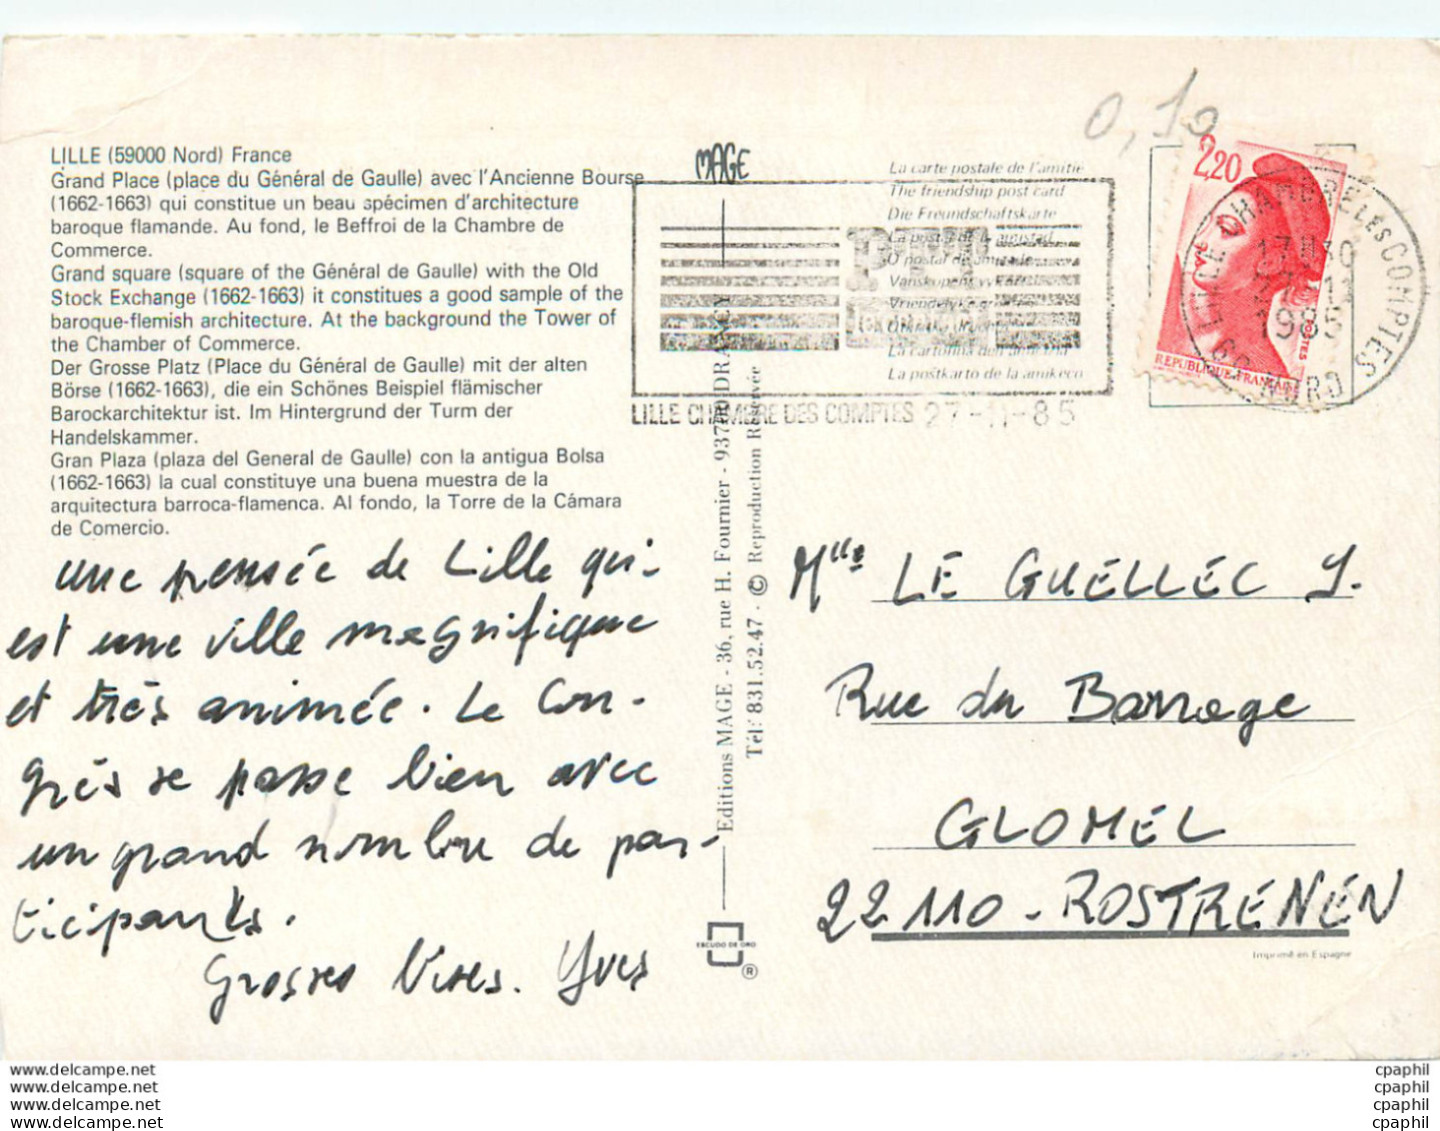 LILLE (59000 Nord) France
Grand Place (place du Général de Gaulle) avec l'Ancienne Bourse
(1662-1663) qui constitue un beau spécimen d'architecture
baroque flamande. Au fond, le Beffroi de la Chambre de
Commerce.
Grand square (square of the Général de Gaulle) with the Old
Stock Exchange (1662-1663) it constitutes a good sample of the
baroque-flemish architecture. At the background the Tower of
the Chamber of Commerce.
Der Grosse Platz (Place du Général de Gaulle) mit der alten
Börse (1662-1663), die ein Schönes Beispiel flämischer
Barockarchitektur ist. Im Hintergrund der Turm der
Handelskammer.
Gran Plaza (plaza del General de Gaulle) con la antigua Bolsa
(1662-1663) la cual constituye una buena muestra de la
arquitectura barroca-flamenca. Al fondo, la Torre de la Cámara
de Comercio.
une pensée de Lille qui
est une ville magnifique
et très animée. Le Con-
grès se passe bien avec
un grand nombre de par-
ticipants.
Grosses bises. Yves
MAGE
Editions MAGE - 36, rue H. Fournier - 93700 DRANCY
Tél: 831.52.47 - © Reproduction Réservée
ESCUDO DE ORO
®
La carte postale de l'amitié
The friendship post card
Die Freundschaftskarte
La postal de la amistad
O postal de amizade
Vanskapens vykort
Vriendelyke
La cartolina dell'amicizia
La poŝtkarto de la amikeco
PTT
LILLE CHAMBRE DES COMPTES 27-11-85
0,10
2,20
POSTES
REPUBLIQUE FRANÇAISE
LILLE CHAMBRE DES COMPTES
17H30
27-11
1985
59 NORD
Mlle LE GUELLEC Y.
Rue du Barrage
GLOMEL
22110 - ROSTRENEN
Imprimé en Espagne
www.delcampe.net
www.delcampe.net
www.delcampe.net
www.delcampe.net
cpaphil
cpaphil
cpaphil
cpaphil